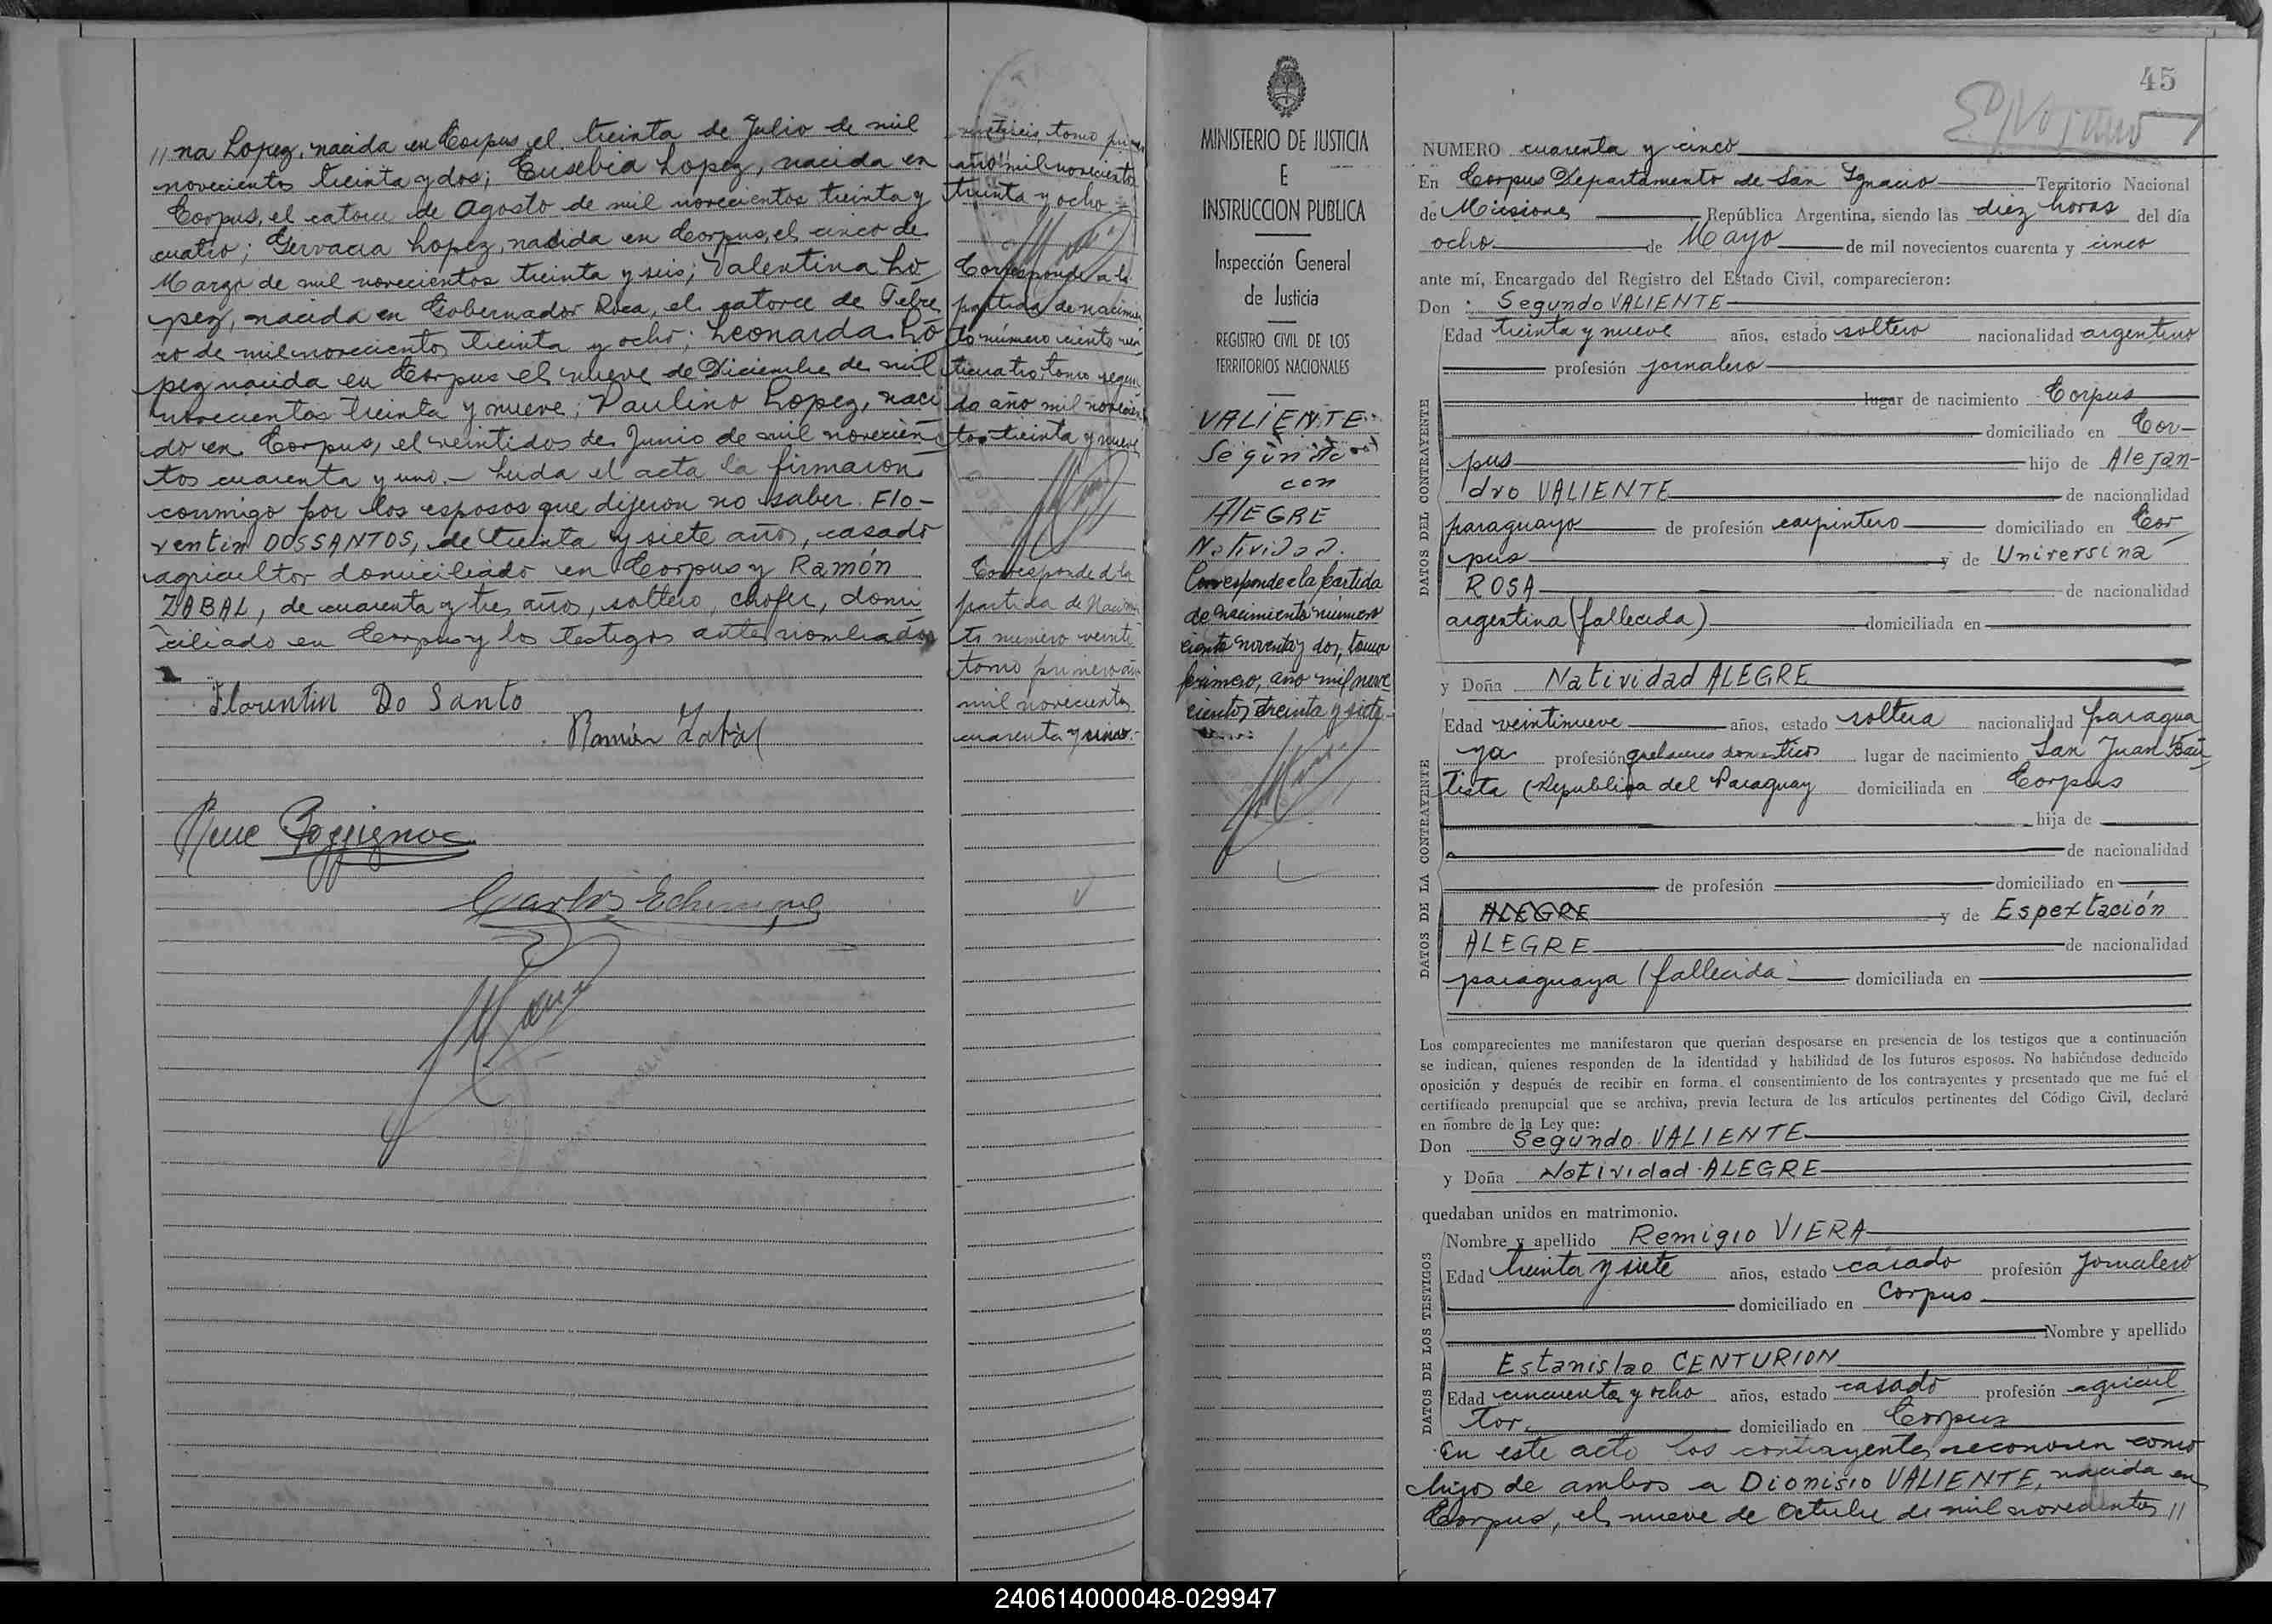 // na Lopez, nacida en Corpus el treinta de Julio de mil
novecientos treinta y dos; Eusebia Lopez, nacida en
Corpus, el catorce de Agosto de mil novecientos treinta y
cuatro; Gervacia Lopez, nacida en Corpus, el cinco de
Marzo de mil novecientos treinta y seis; Valentina Lo
pez, nacida en Gobernador Roca, el catorce de Febre
ro de mil novecientos treinta y ocho; Leonarda Lo
pez nacida en Corpus el nueve de Diciembre de mil
novecientos treinta y nueve; Paulino Lopez, naci
do en Corpus, el veintidos de Junio de mil novecien
tos cuarenta y uno.- Leida el acta la firmaron
conmigo por los esposos que dijeron no saber. Flo-
rentin DOSSANTOS, de treinta y siete años, casado
agricultor domiciliado en Corpus y Ramón
ZABAL, de cuarenta y tres años, soltero, chofer, domi
ciliado en Corpus y los testigos antes nombrados
Florentin Do Santo
Ramón Zabal
Rene
Carlos
tomo
año mil novecientos
treinta y ocho
Corresponde a la
partida de nacimien
to número ciento vein
ticuatro, tomo segun
do año mil novecien
tos treinta y nueve
Corresponde a la
partida de Nacimien
to numero veinte
tomo primero año
mil novecientos
cuarenta y cinco.-
MINISTERIO DE JUSTICIA
E
INSTRUCCION PUBLICA
Inspección General
de Justicia
REGISTRO CIVIL DE LOS
TERRITORIOS NACIONALES
VALIENTE
Segundo
con
ALEGRE
Natividad.
Corresponde a la partida
de nacimiento número
ciento noventa y dos, tomo
primero, año mil nove
cientos treinta y siete
45
NUMERO cuarenta y cinco
En Corpus Departamento de San Ignacio Territorio Nacional
de Misiones República Argentina, siendo las diez horas del día
ocho de Mayo de mil novecientos cuarenta y cinco
ante mí, Encargado del Registro del Estado Civil, comparecieron:
Don : Segundo VALIENTE
DATOS DEL CONTRAYENTE
Edad treinta y nueve años, estado soltero nacionalidad argentino
profesión jornalero
lugar de nacimiento Corpus
domiciliado en Cor-
pus hijo de Alejan-
dro VALIENTE de nacionalidad
paraguayo de profesión carpintero domiciliado en Cor
pus y de Universina
ROSA de nacionalidad
argentina (fallecida) domiciliada en
y Doña Natividad ALEGRE
DATOS DE LA CONTRAYENTE
Edad veintinueve años, estado soltera nacionalidad paragua
ya profesión quehaceres domesticos lugar de nacimiento San Juan Bau
tista (Republica del Paraguay domiciliada en Corpus
hija de
de nacionalidad
de profesión domiciliado en
ALEGRE y de Espextación
ALEGRE de nacionalidad
paraguaya (fallecida domiciliada en
Los comparecientes me manifestaron que querían desposarse en presencia de los testigos que a continuación
se indican, quienes responden de la identidad y habilidad de los futuros esposos. No habiéndose deducido
oposición y después de recibir en forma el consentimiento de los contrayentes y presentado que me fué el
certificado prenupcial que se archiva, previa lectura de los artículos pertinentes del Código Civil, declaré
en nombre de la Ley que:
Don Segundo VALIENTE
y Doña Natividad ALEGRE
quedaban unidos en matrimonio.
DATOS DE LOS TESTIGOS
Nombre y apellido Remigio VIERA
Edad treinta y siete años, estado casado profesión Jornalero
domiciliado en Corpus
Nombre y apellido
Estanislao CENTURION
Edad cincuenta y ocho años, estado casado profesión agricul
tor, domiciliado en Corpus
En este acto los contrayentes reconocen como
hijos de ambos a Dionisio VALIENTE, nacida en
Corpus, el nueve de Octubre de mil novecientos //
240614000048-029947